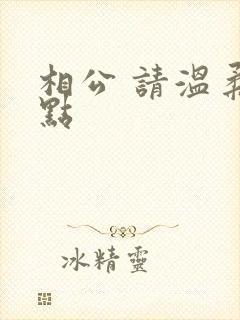 相公 請溫柔
點
冰精靈